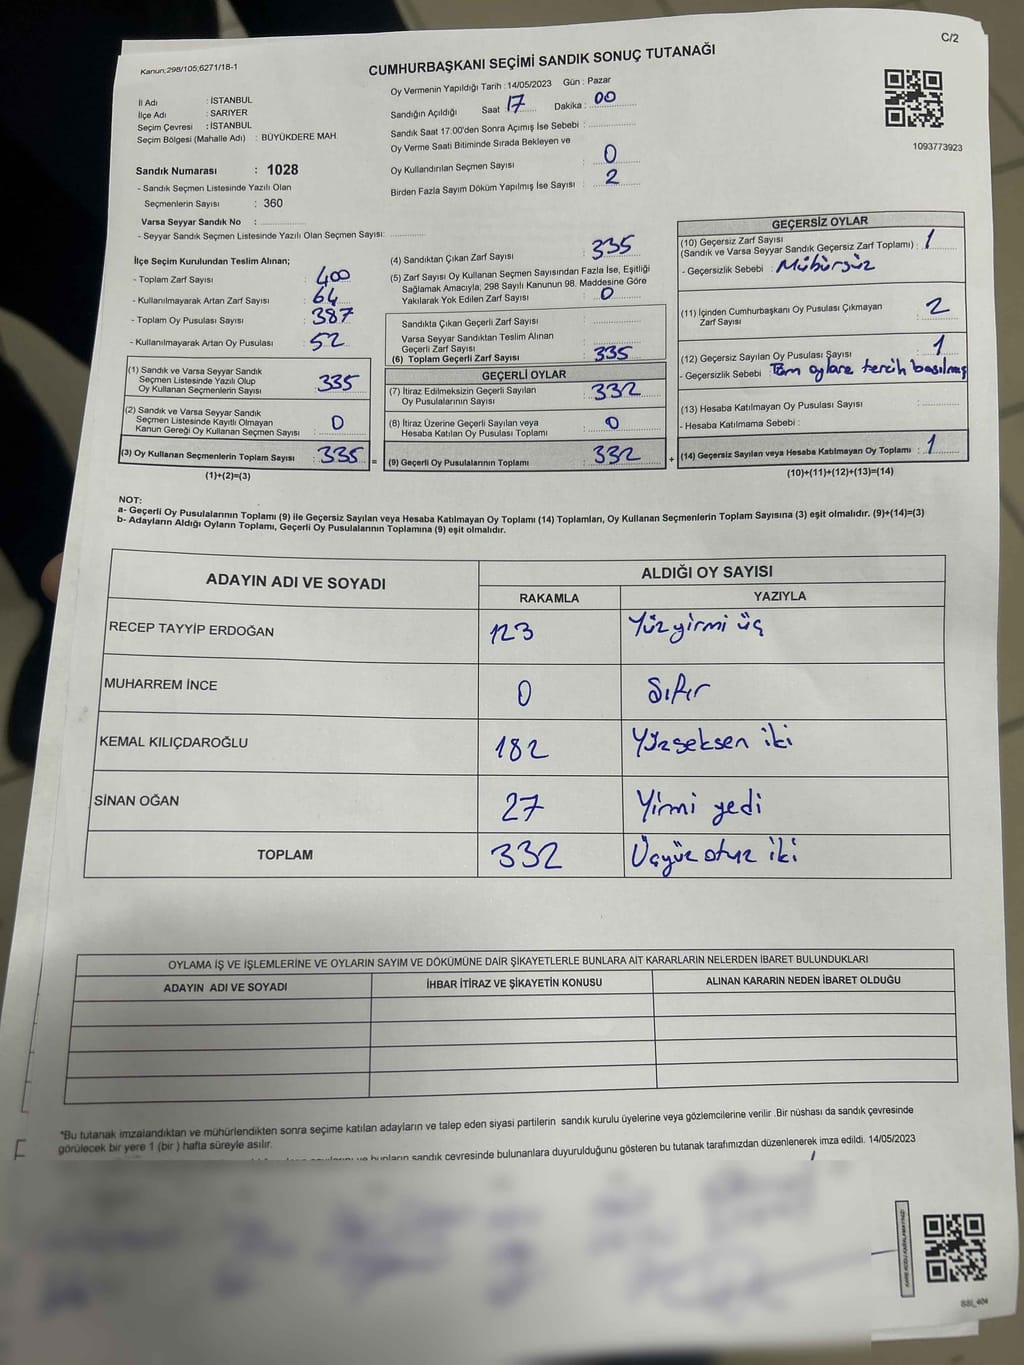 C/2
Kanun:298/105;6271/18-1
CUMHURBAŞKANI SEÇİMİ SANDIK SONUÇ TUTANAĞI
Oy Vermenin Yapıldığı Tarih : 14/05/2023 Gün : Pazar
İl Adı : İSTANBUL
İlçe Adı : SARIYER
Seçim Çevresi : İSTANBUL
Seçim Bölgesi (Mahalle Adı) : BÜYÜKDERE MAH.
Sandık Numarası : 1028
- Sandık Seçmen Listesinde Yazılı Olan
Seçmenlerin Sayısı : 360
Varsa Seyyar Sandık No :
- Seyyar Sandık Seçmen Listesinde Yazılı Olan Seçmen Sayısı:
Sandığın Açıldığı Saat 17 Dakika : 00
Sandık Saat 17.00'den Sonra Açımış İse Sebebi :
Oy Verme Saati Bitiminde Sırada Bekleyen ve
Oy Kullandırılan Seçmen Sayısı : 0
Birden Fazla Sayım Döküm Yapılmış İse Sayısı : 2
1093773923
İlçe Seçim Kurulundan Teslim Alınan;
- Toplam Zarf Sayısı : 400
- Kullanılmayarak Artan Zarf Sayısı : 64
- Toplam Oy Pusulası Sayısı : 387
- Kullanılmayarak Artan Oy Pusulası : 52
(1) Sandık ve Varsa Seyyar Sandık
Seçmen Listesinde Yazılı Olup
Oy Kullanan Seçmenlerin Sayısı : 335
(2) Sandık ve Varsa Seyyar Sandık
Seçmen Listesinde Kayıtlı Olmayan
Kanun Gereği Oy Kullanan Seçmen Sayısı : 0
(3) Oy Kullanan Seçmenlerin Toplam Sayısı : 335 =
(1)+(2)=(3)
(4) Sandıktan Çıkan Zarf Sayısı : 335
(5) Zarf Sayısı Oy Kullanan Seçmen Sayısından Fazla İse, Eşitliği
Sağlamak Amacıyla; 298 Sayılı Kanunun 98. Maddesine Göre
Yakılarak Yok Edilen Zarf Sayısı : 0
Sandıkta Çıkan Geçerli Zarf Sayısı :
Varsa Seyyar Sandıktan Teslim Alınan
Geçerli Zarf Sayısı :
(6) Toplam Geçerli Zarf Sayısı : 335
GEÇERLİ OYLAR
(7) İtiraz Edilmeksizin Geçerli Sayılan
Oy Pusulalarının Sayısı : 332
(8) İtiraz Üzerine Geçerli Sayılan veya
Hesaba Katılan Oy Pusulası Toplamı : 0
(9) Geçerli Oy Pusulalarının Toplamı : 332 +
GEÇERSİZ OYLAR
(10) Geçersiz Zarf Sayısı
(Sandık ve Varsa Seyyar Sandık Geçersiz Zarf Toplamı) : 1
- Geçersizlik Sebebi : Mühürsüz
(11) İçinden Cumhurbaşkanı Oy Pusulası Çıkmayan
Zarf Sayısı : 2
(12) Geçersiz Sayılan Oy Pusulası Sayısı : 1
- Geçersizlik Sebebi : Tüm oylara tercih basılmış
(13) Hesaba Katılmayan Oy Pusulası Sayısı :
- Hesaba Katılmama Sebebi :
(14) Geçersiz Sayılan veya Hesaba Katılmayan Oy Toplamı : 1
(10)+(11)+(12)+(13)=(14)
NOT:
a- Geçerli Oy Pusulalarının Toplamı (9) ile Geçersiz Sayılan veya Hesaba Katılmayan Oy Toplamı (14) Toplamları, Oy Kullanan Seçmenlerin Toplam Sayısına (3) eşit olmalıdır. (9)+(14)=(3)
b- Adayların Aldığı Oyların Toplamı, Geçerli Oy Pusulalarının Toplamına (9) eşit olmalıdır.
ADAYIN ADI VE SOYADI
ALDIĞI OY SAYISI
RAKAMLA YAZIYLA
RECEP TAYYİP ERDOĞAN 123 Yüzyirmi üç
MUHARREM İNCE 0 Sıfır
KEMAL KILIÇDAROĞLU 182 Yüzseksen iki
SİNAN OĞAN 27 Yirmi yedi
TOPLAM 332 Üçyüz otuz iki
OYLAMA İŞ VE İŞLEMLERİNE VE OYLARIN SAYIM VE DÖKÜMÜNE DAİR ŞİKAYETLERLE BUNLARA AİT KARARLARIN NELERDEN İBARET BULUNDUKLARI
ADAYIN ADI VE SOYADI İHBAR İTİRAZ VE ŞİKAYETİN KONUSU ALINAN KARARIN NEDEN İBARET OLDUĞU
*Bu tutanak imzalandıktan ve mühürlendikten sonra seçime katılan adayların ve talep eden siyasi partilerin sandık kurulu üyelerine veya gözlemcilerine verilir .Bir nüshası da sandık çevresinde
görülecek bir yere 1 (bir ) hafta süreyle asılır.
ve bunların sandık çevresinde bulunanlara duyurulduğunu gösteren bu tutanak tarafımızdan düzenlenerek imza edildi. 14/05/2023